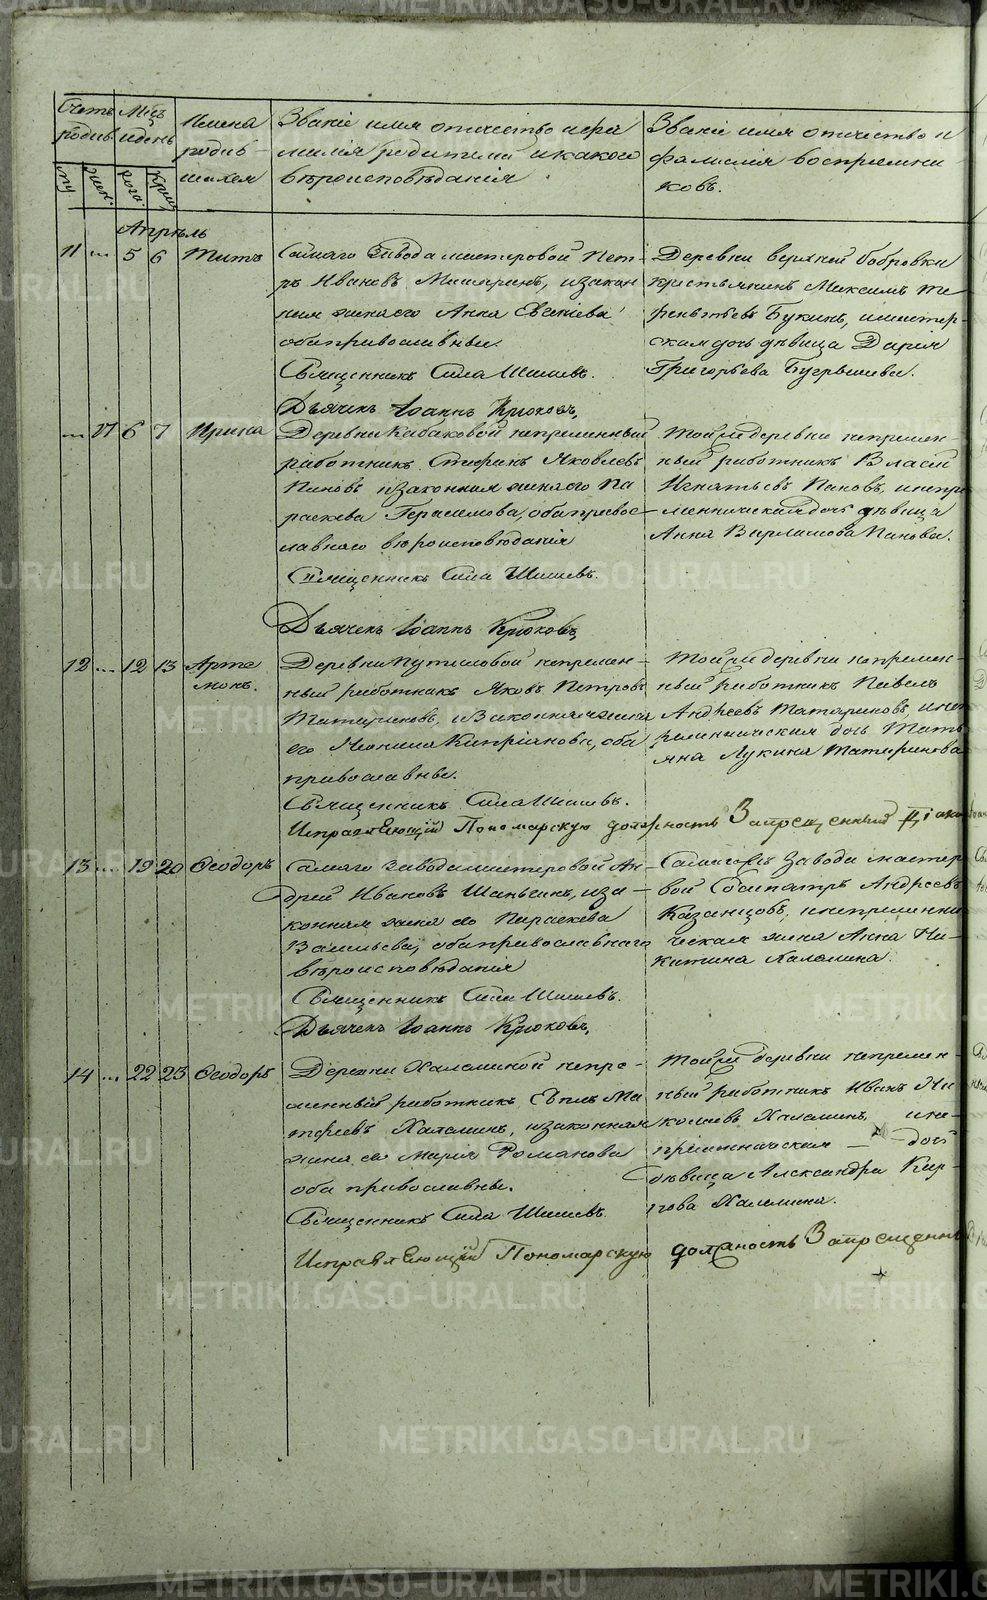 METRIKI.GASO-URAL.RU
Счетъ родив.
Мѣсц. и день
Имена родив-
шихся
Званіе имя отчество и фа
милія родителей и какого
вѣроисповѣданія
Званіе имя отчество и
фамилія воспріемни
ковъ.
му жен. рожд. Крещ.
Апрѣль
11 ... 5 6 Титъ
Самаго Завода мастеровой Пет
ръ Ивановъ Мишаринъ, и закон
ная жена его Анна
оба православные.
Священникъ Сила Шишевъ.
Дьячекъ Іоаннъ Крюковъ,
Деревни верхней бобровки
крестьянинъ Максимъ Те
рентьевъ Букинъ, и мастер-
ская дочь дѣвица Дарья
Григорьева
... 6 7 Ирина
Деревни Кабаковой непременный
работникъ Стефанъ Яковлевъ
Пановъ и законная жена его Па
раскева Герасимова, оба правос-
лавнаго вѣроисповѣданія
Священникъ Сила Шишевъ.
Дьячекъ Іоаннъ Крюковъ,
Той же деревни непремен-
ный работникъ Власій
Игнатьевъ Пановъ, и непре
менническая дочь дѣвица
Анна Варламова Панова.
12 ... 12 13 Арте
монъ.
Деревни Путиловой непремен-
ный работникъ Яковъ Петровъ
Татариновъ, и Законная жена
его Кипріанова, оба
православные.
Священникъ Сила Шишевъ.
Исправляющій Пономарскую должность Запрещенный
Той же деревни непремен-
ный работникъ Павелъ
Андреевъ Татариновъ, и неп
ременническая дочь Тать
яна Лукина Татаринова
13 ... 19 20 Ѳеодоръ
Самаго Завода мастеровой Ан
дрей Ивановъ Шаньгинъ, и за-
конная жена его Параскева
Васильева, оба православнаго
вѣроисповѣданія
Священникъ Сила Шишевъ.
Дьячекъ Іоаннъ Крюковъ,
Самаго жъ Завода мастер
вой Сосипатръ Андреевъ
Казанцовъ, и непременни
ческая жена Анна Ни-
китина Халамина.
14 ... 22 23 Ѳеодоръ
Деревни Халаминой непре-
менный работникъ Ма
тфеевъ Халаминъ, и законная
жена его Марія Романова
оба православные.
Священникъ Сила Шишевъ.
Исправляющій Пономарскую должность Запрещенны
Той же деревни непремен-
ный работникъ Иванъ Ни
колаевъ Халаминъ, и не-
пременническая - дочь
дѣвица Александра Кар-
пова Халамина.